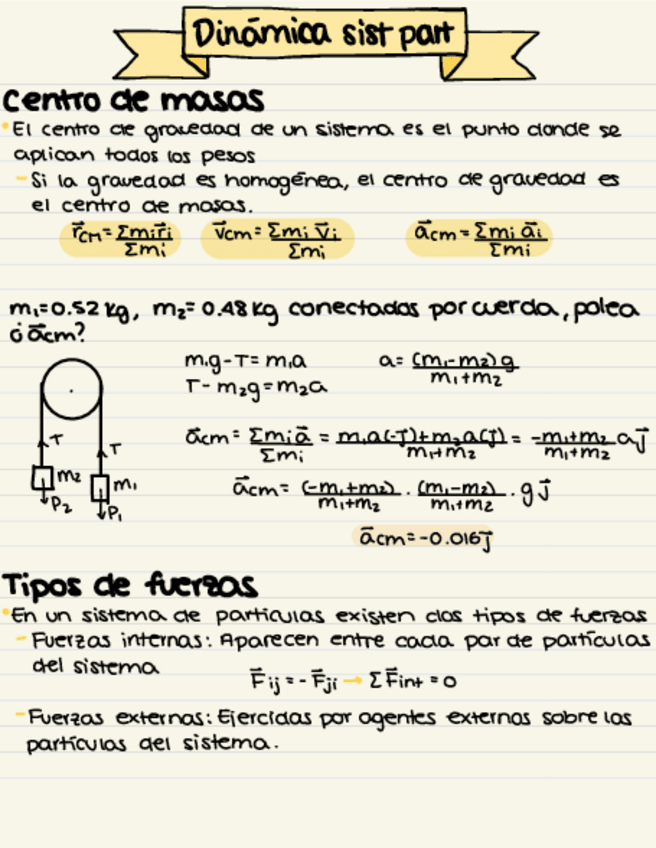 Dinámica sist part
Centro de masas
• El centro de gravedad de un sistema es el punto donde se
aplican todos los pesos
- Si la gravedad es homogénea, el centro de gravedad es
el centro de masas.
r⃗cm = Σmi r⃗i / Σmi   v⃗cm = Σmi v⃗i / Σmi   a⃗cm = Σmi a⃗i / Σmi
m₁=0.52 kg, m₂=0.48 kg conectadas por cuerda, polea
¿a⃗cm?
m₁g-T=m₁a   a = (m₁-m₂)g / m₁+m₂
T-m₂g=m₂a
a⃗cm = Σmi a⃗ / Σmi = m₁a(-j⃗)+m₂a(j⃗) / m₁+m₂ = -m₁+m₂ / m₁+m₂ a j⃗
T T
m₂ m₁
P₂ P₁
a⃗cm = (-m₁+m₂) / m₁+m₂ · (m₁-m₂) / m₁+m₂ · g j⃗
a⃗cm=-0.016j⃗
Tipos de fuerzas
• En un sistema de partículas existen dos tipos de fuerzas
- Fuerzas internas: Aparecen entre cada par de partículas
del sistema
F⃗ij = - F⃗ji → ΣF⃗int = 0
- Fuerzas externas: Ejercidas por agentes externos sobre las
partículas del sistema.